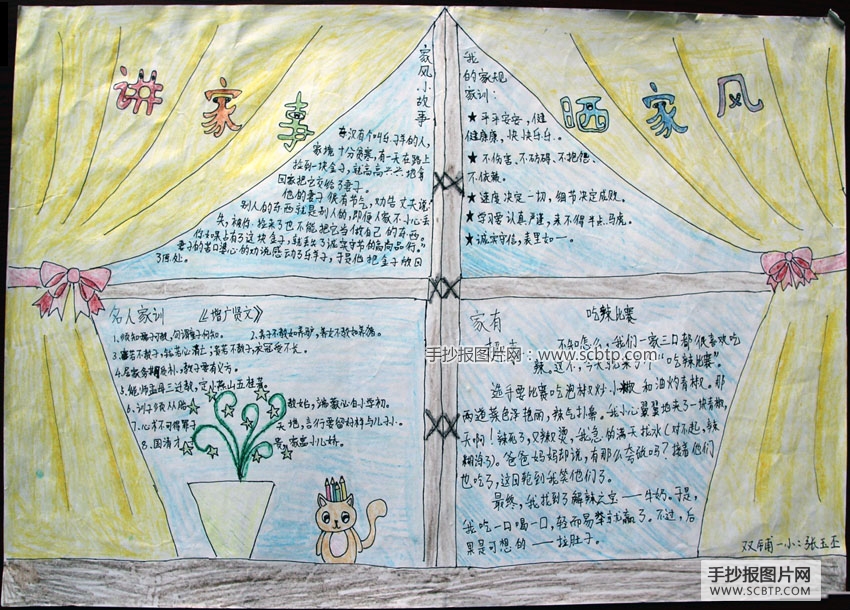 讲家事
晒家风
家风小故事
东汉有个叫乐子羊的人,
家境十分贫寒,有一天在路上
捡到一块金子,就高高兴兴把拿
回家把它交给了妻子。
他的妻子很有节气,劝告丈夫说
别人的东西就是别人的,即便人家不小心丢
失,被你捡来了也不能把它当做自己的东西。
你如果占有了这块金子,就丢失了诚实守节的高尚品行。
妻子的苦口婆心的劝说感动了乐羊子,于是他把金子放回
了原处。
我
的家规
家训:
★平平安安,健
健康康,快快乐乐。
★不伤害、不妨碍、不抱怨、
不依赖。
★速度决定一切,细节决定成败。
★学习要认真严谨,来不得半点马虎。
★诚实守信,表里如一。
名人家训 《增广贤文》
8、国清才
贵,家富小儿娇。
家有
吃辣比赛
不知怎么,我们一家三口都很喜欢吃
辣。这不,今天就来了个“吃辣比赛”。
手抄报图片网:www.scbtp.com
选手要比赛吃泡椒对小椒和油灼青椒。那
两道菜色泽艳丽,辣气扑鼻。我小心翼翼地夹了一块青椒,
天啊!辣死了,又辣又烫,我急的满天找水(对不起,辣
糊涂了)。爸爸妈妈却说,有那么夸张吗?接着他们
也吃了,这回轮到我笑他们了。
最终,我找到了解辣之宝——牛奶。于是,
我吃一口喝一口,轻而易举就赢了。不过,后
果是可想的——拉肚子。
双铺一小:张玉丕
手抄报图片网
WWW.SCBTP.COM